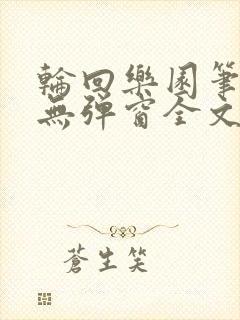 輪回樂園筆
無彈窗全文
蒼生笑